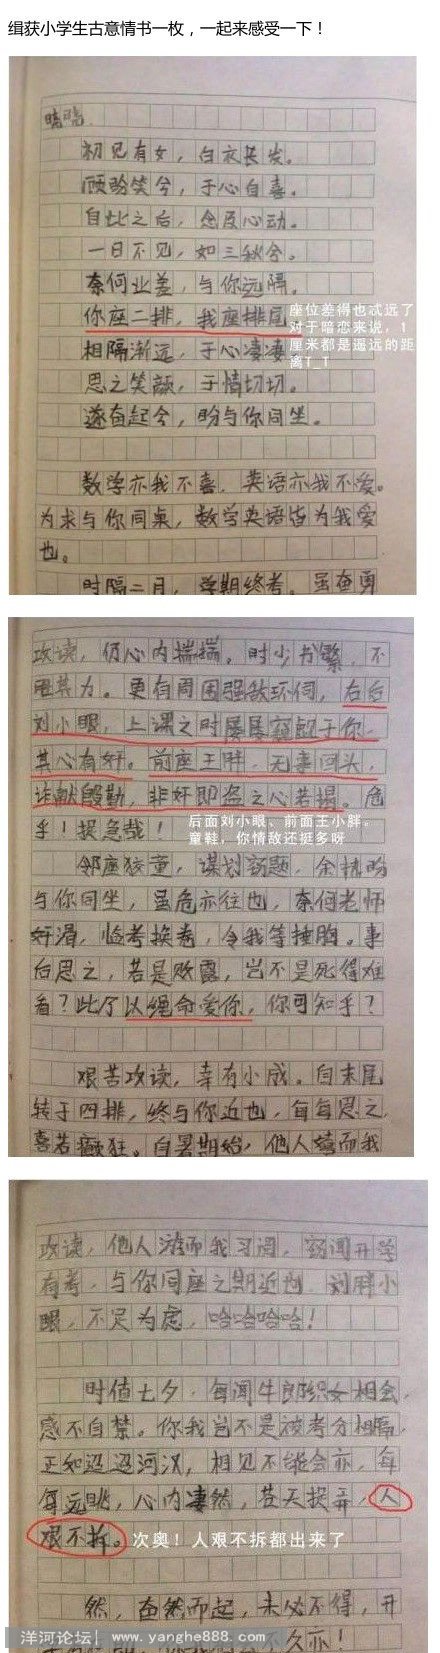 缉获小学生古意情书一枚，一起来感受一下！
晗晗
初见有女，白衣长发。
顾盼笑兮，于心自喜。
自此之后，念及心动。
一日不见，如三秋兮。
奈何业差，与你远隔。
你座二排，我座排尾
座位差得也忒远了
对于暗恋来说，1
厘米都是遥远的距
离T_T
相隔渐远，于心凄凄
思之笑颜，于情切切。
遂奋起兮，盼与你同坐。
数学亦我不喜，英语亦我不爱。
为求与你同桌，数学英语皆为我爱
也。
时隔二月，学期终考。虽奋勇
攻读，仍心内揣揣。时少书繁，不
其力。更有周围强敌环伺，右后
刘小眼，上课之时屡屡窥觑于你，
其心有奸。前座王胖，无事回头，
诈献殷勤，非奸即盗之心若揭。危
乎！提急哉！
后面刘小眼、前面王小胖。
童鞋，你情敌还挺多呀
邻座狡童，谋划窃题，余情盼
与你同坐，虽危亦往也，奈何老师
奸滑，临考换卷，令我等捶胸。事
后思之，若是败露，岂不是死得难
看？此乃以绳命爱你，你可知乎？
艰苦攻读，幸有小成。自末尾
转于四排，终与你近也，每每思之，
喜若癫狂。自暑期始，他人嬉而我
攻读，他人游而我习阅，窃闻开学
有考，与你同座之期近也，刘胖小
眼，不足为虑，哈哈哈哈！
时值七夕，每闻牛郎织女相会，
感不自禁。你我岂不是被考分相隔，
正如迢迢河汉，相见不能会亦，每
每远眺，心内凄然，苍天捉弄，人
艰不拆。
次奥！人艰不拆都出来了
然，奋然而起，未必不得，开
久亦！
洋河论坛| www.yanghe888.com